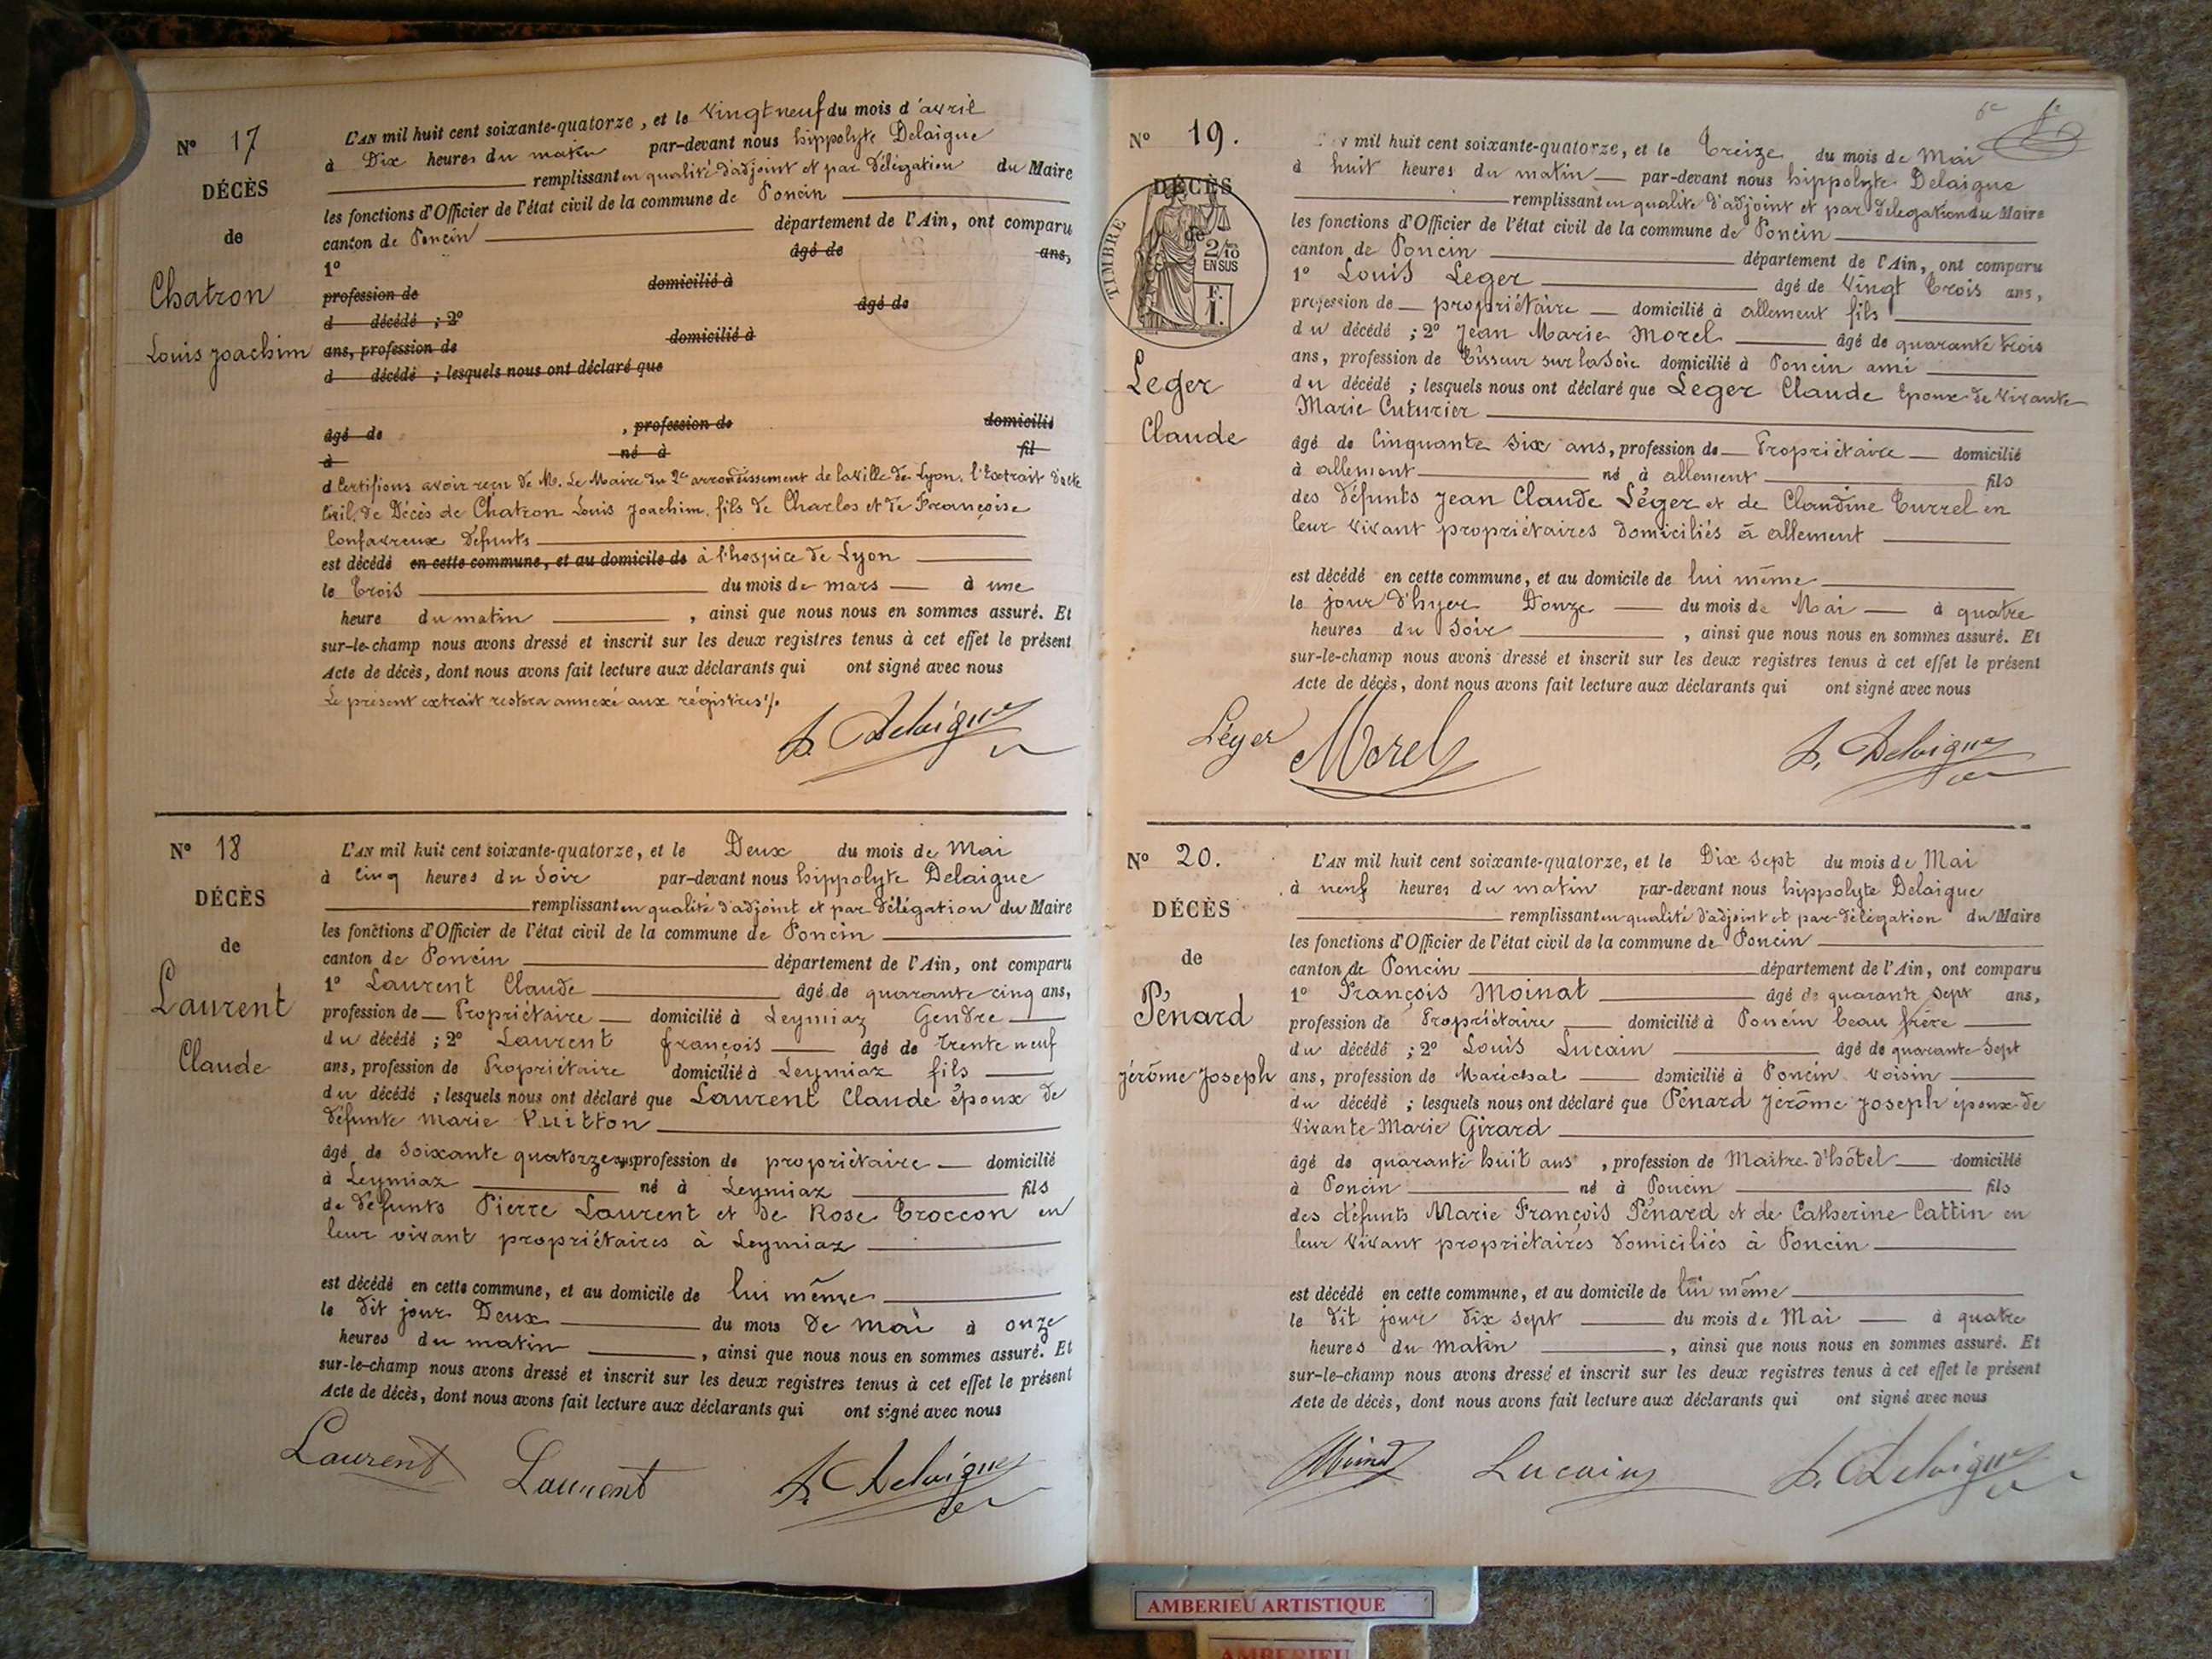 N° 17
DÉCÈS
de
Chatron
Louis Joachim
L'AN mil huit cent soixante-quatorze, et le vingt neuf du mois d'avril
à Dix heures du matin par-devant nous hippolyte Delaigue
remplissant en qualité d'adjoint et par délégation du Maire
les fonctions d'Officier de l'état civil de la commune de Poncin
canton de Poncin département de l'Ain, ont comparu
1° âgé de ans,
profession de domicilié à
d décédé ; 2° âgé de
ans, profession de domicilié à
d décédé ; lesquels nous ont déclaré que
âgé de , profession de domicilié
à né à fil
d Certifions avoir reçu de M. Le Maire du 2e arrondissement de la ville de Lyon, l'Extrait d'acte
Civil de Décès de Chatron Louis Joachim, fils de Charles et de Françoise
Confavreux défunts
est décédé en cette commune, et au domicile de à l'hospice de Lyon
le trois du mois de mars à une
heure du matin , ainsi que nous nous en sommes assuré. Et
sur-le-champ nous avons dressé et inscrit sur les deux registres tenus à cet effet le présent
Acte de décès, dont nous avons fait lecture aux déclarants qui ont signé avec nous
Le présent extrait restera annexé aux régistres %.
h. Delaigue
N° 18
DÉCÈS
de
Laurent
Claude
L'AN mil huit cent soixante-quatorze, et le Deux du mois de Mai
à cinq heures du Soir par-devant nous hippolyte Delaigue
remplissant en qualité d'adjoint et par délégation du Maire
les fonctions d'Officier de l'état civil de la commune de Poncin
canton de Poncin département de l'Ain, ont comparu
1° Laurent Claude âgé de quarante cinq ans,
profession de Propriétaire domicilié à Leymiaz Gendre
du décédé ; 2° Laurent françois âgé de trente neuf
ans, profession de Propriétaire domicilié à Leymiaz fils
du décédé ; lesquels nous ont déclaré que Laurent Claude époux de
défunte marie Vuitton
âgé de Soixante quatorze ans profession de propriétaire domicilié
à Leymiaz né à Leymiaz fils
de défunts Pierre Laurent et de Rose Troccon en
leur vivant propriétaires à Leymiaz
est décédé en cette commune, et au domicile de lui même
le dit jour Deux du mois de mai à onze
heures du matin , ainsi que nous nous en sommes assuré. Et
sur-le-champ nous avons dressé et inscrit sur les deux registres tenus à cet effet le présent
Acte de décès, dont nous avons fait lecture aux déclarants qui ont signé avec nous
Laurent Laurent h. Delaigue
6e
N° 19.
DÉCÈS
de
TIMBRE
2/10
EN SUS
F.
1.
Leger
Claude
mil huit cent soixante-quatorze, et le treize du mois de Mai
à huit heures du matin par-devant nous hippolyte Delaigue
remplissant en qualité d'adjoint et par délégation du Maire
les fonctions d'Officier de l'état civil de la commune de Poncin
canton de Poncin département de l'Ain, ont comparu
1° Louis Leger âgé de vingt trois ans,
profession de propriétaire domicilié à allement fils
du décédé ; 2° Jean Marie Morel âgé de quarante trois
ans, profession de Tisseur sur la Soie domicilié à Poncin ami
du décédé ; lesquels nous ont déclaré que Leger Claude époux de vivante
Marie Cuturier
âgé de Cinquante Six ans, profession de Propriétaire domicilié
à allement né à allement fils
des défunts Jean Claude Léger et de Claudine Turrel en
leur vivant propriétaires domiciliés à allement
est décédé en cette commune, et au domicile de lui même
le jour d'hyer Douze du mois de Mai à quatre
heures du Soir , ainsi que nous nous en sommes assuré. Et
sur-le-champ nous avons dressé et inscrit sur les deux registres tenus à cet effet le présent
Acte de décès, dont nous avons fait lecture aux déclarants qui ont signé avec nous
Léger Morel h. Delaigue
N° 20.
DÉCÈS
de
Pénard
Jérôme Joseph
L'AN mil huit cent soixante-quatorze, et le Dix Sept du mois de Mai
à neuf heures du matin par-devant nous hippolyte Delaigue
remplissant en qualité d'adjoint et par délégation du Maire
les fonctions d'Officier de l'état civil de la commune de Poncin
canton de Poncin département de l'Ain, ont comparu
1° François Moinat âgé de quarante sept ans,
profession de Propriétaire domicilié à Poncin beau frère
du décédé ; 2° Louis Lucain âgé de quarante Sept
ans, profession de Maréchal domicilié à Poncin voisin
du décédé ; lesquels nous ont déclaré que Pénard Jérôme Joseph époux de
vivante Marie Girard
âgé de quarante huit ans , profession de Maitre d'hôtel domicilié
à Poncin né à Poncin fils
des défunts Marie François Pénard et de Catherine Cattin en
leur vivant propriétaires domiciliés à Poncin
est décédé en cette commune, et au domicile de lui même
le dit jour dix sept du mois de Mai à quatre
heures du Matin , ainsi que nous nous en sommes assuré. Et
sur-le-champ nous avons dressé et inscrit sur les deux registres tenus à cet effet le présent
Acte de décès, dont nous avons fait lecture aux déclarants qui ont signé avec nous
Lucain h. Delaigue
AMBERIEU ARTISTIQUE
AMBERIEU